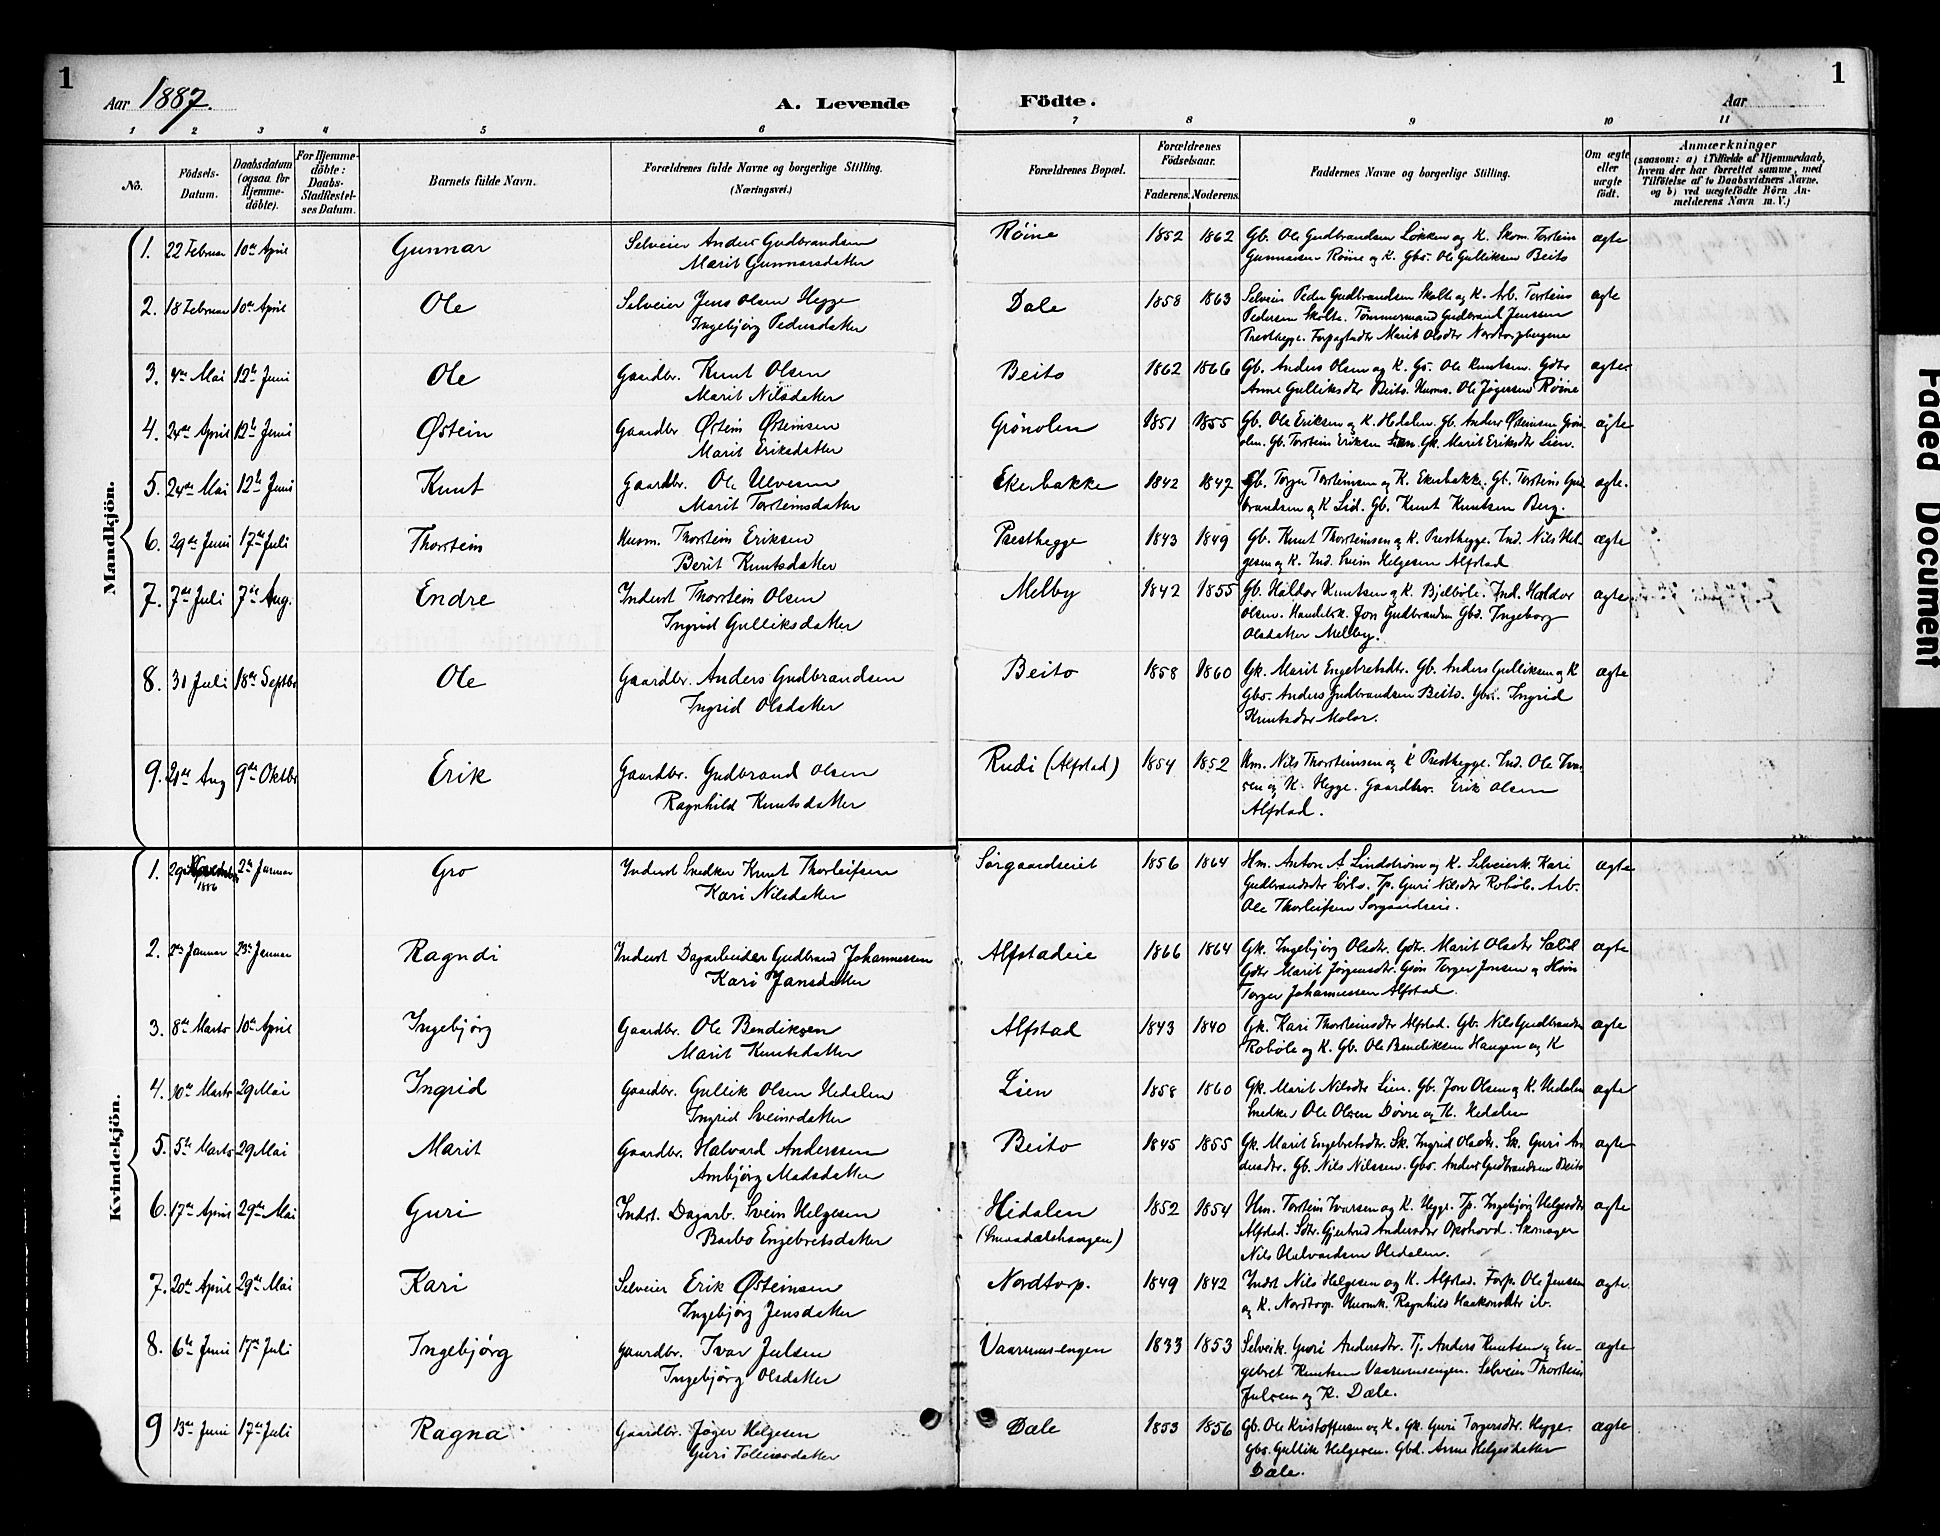 1
Aar 1887.
A. Levende
Födte.
Aar
1
1 2 3 4 5 6 7 8 9 10 11
No.
Födsels-Datum.
Daabsdatum (ogsaa for Hjemme-döbte).
For Hjemme-döbte: Daabs-Stadfæstel-ses Datum.
Barnets fulde Navn.
Forældrenes fulde Navne og borgerlige Stilling. (Næringsvei.)
Forældrenes Bopæl.
Forældrenes Födselsaar.
Faderens. Moderens.
Faddernes Navne og borgerlige Stilling.
Om ægte eller uægte födt.
Anmærkninger
(saasom: a) i Tilfælde af Hjemmedaab,
hvem der har forrettet samme, med
Tilföielse af to Daabsvidners Navne,
og b) ved uægtefödte Börn An-
melderens Navn m. V.)
Mandkjön.
1. 22 Februar 10de April Gunnar Selveier Anders Gudbrandsen Røine 1852 1862 Gb. Ole Gudbrandsen Løkken og K. Skom. Torstein ægte
Marit Gunnarsdatter Gunnarsen Røine og K. Gbs. Ole Gulliksen Beito
2. 18 Februar 10de April Ole Selveier Jens Olsen Hegge Dale 1858 1863 Selveier Peder Gudbrandsen Skolte og K. Arb. Torstein ægte
Ingebjørg Pedersdatter Pedersen Skolte. Tømmermand Gudbrand Jenssen
Presthegge. Marit Olsdtr
3. 4de Mai 12te Juni Ole Gaardbr. Knut Olsen Beito 1862 1866 Gb. Anders Olsen og K. Gs. Ole Knutsen. Gdtr ægte
Marit Nilsdatter Anne Gulliksdtr Beito. Husms. Ole Jøgersen Røine
4. 24de April 12te Juni Østein Gaardbr Østein Østeinsen Grönolen 1851 1855 Gb. Ole Eriksen og K. Hedalen. Gb. Anders Østeinsen Grön ægte
Marit Eriksdatter olen. Gb. Torstein Eriksen Lien. Gk. Marit Eriksdtr Lien.
5. 24de Mai 12te Juni Knut Gaardbr. Ole Ulvesen Ekerbakke 1842 1847 Gb. Torger Torsteinsen og K. Ekerbakke. Gb. Torstein Gud ægte.
Marit Torsteinsdatter brandsen og K Lid. Gb. Knut Knutsen Berg.
6. 29de Juni 17de Juli Thorstein Husm. Thorstein Eriksen Presthegge 1843 1849 Gb. Knut Thorsteinsen og K. Presthegge. Ind. Nils Hel ægte
Berit Knutsdatter gesen og K. Ind. Svein Helgesen Alfstad
7. 7de Juli 7de Aug. Endre Inderst Thorstein Olsen Melby 1842 1855 Gb. Haldor Knutsen og K. Bjelbøle. Ind. Haldor ægte
Ingrid Gulliksdatter Olsen. Handelsk. Jon Gudbrandsen Gbd. Ingeborg
Olsdatter Melby.
8. 31 Juli 18de Septbr Ole Gaardbr. Anders Gudbrandsen Beito 1858 1860 Gk. Marit Engebretsdtr. Gb. Anders Gulliksen og K ægte
Ingrid Olsdatter Gbs. Anders Gudbrandsen Beito. Ingrid
Knutsdtr Moløs.
9. 21de Aug 9de Oktbr Erik Gaardbr. Gudbrand Olsen Rudi (Alfstad) 1854 1852 Hm. Nils Thorsteinsen og K Presthegge. Ind. Ole Iva
Ragnhild Knutsdatter sen og K. Hegge. Gaardbr. Erik Olsen
Alfstad.
Kvindekjön.
1. 29de 1886 2de Januar Gro Inderst Snedker Knut Thorleifsen Sørgaardseiet 1856 1864 Hm. Anton A. Lindstrøm og K. Selveierk. Kari ægte
Kari Nilsdatter Gudbrandsdtr Beito. Tp. Guri Nilsdtr Robøle. Arb.
Ole Thorleifsen Sørgaardseie.
2. 2de Januar 23de Januar Ragndi Inderst Dagarbeider Gudbrand Johannessen Alfstadeie 1866 1864 Gk. Ingebjørg Olsdtr. Gdtr. Marit Olsdtr ægte
Kari Jansdatter Gdtr Marit Jørgensdtr. Gsøn Torger Jonsen og
Torger Johannessen Alfstad.
3. 8de Marts 10de April Ingebjørg Gaardbr. Ole Bendiksen Alfstad 1843 1840 Gk. Kari Thorsteinsdtr Alfstad. Gb. Nils Gudbrandsen ægte
Marit Knutsdatter Robøle og K. Gb. Ole Bendiksen Haugen og K
4. 10de Marts 29 Mai Ingrid Gaardbr. Gullik Olsen Hedalen Lien 1858 1860 Gk. Marit Nilsdtr Lien. Gb. Jon Olsen og K. Hedalen ægte
Ingrid Sveinsdatter Snedker Ole Olsen Døvre og K. Hedalen
5. 5te Marts 29 Mai Marit Gaardbr. Halvard Anderssen Beito 1845 1855 Gk. Marit Engebretsdtr. Sk. Ingrid Olsdtr. Sk. Guri An ægte
Arnbjørg Madsdatter dersdtr. Gb. Nils Nilssen. Gbs. Anders Gudbrandsen Beito
6. 17de April 29de Mai Guri Indst. Dagarb. Svein Helgesen Hidalen 1852 1854 Hm. Torstein Ivarsen og K. Hegge. Tp. Ingebjørg Helgesdtr ægte
Barbo Engebretsdatter (Smaadalshaugen) Alfstad. Sdtr. Gjertrud Andersdtr Opshovd. Skomager
Nils Halvardsen Hedalen.
7. 20de April 29de Mai Kari Selveier Erik Østeinsen Nordtorp. 1849 1842 Indst Nils Helgesen og K. Alfstad. Forp. Ole Jenssen ægte.
Ingebjørg Jensdatter og K. Nordtorp. Husmk. Ragnhild Haakonsdtr ib.
8. 6te Juni 17de Juli Ingebjørg Gaardbr. Ivar Julsen Vaarumsengen 1833 1853 Selveik. Guri Andersdtr. Tj. Anders Knutsen og En- ægte
Ingebjørg Olsdatter gebret Knutsen Vaarumsengen. Selveier Thorstein
Julsen og K. Dale.
9 13de Juni 17de Juli Ragna Gaardbr. Jøger Helgesen Dale 1853 1856 Gb. Ole Kristoffersen og K. Gk. Guri Torgersdtr. Hegge. ægte
Guri Gbs. Gullik Helgesen. Gbd. Anne Helgesdatter
Dale.
Faded Document